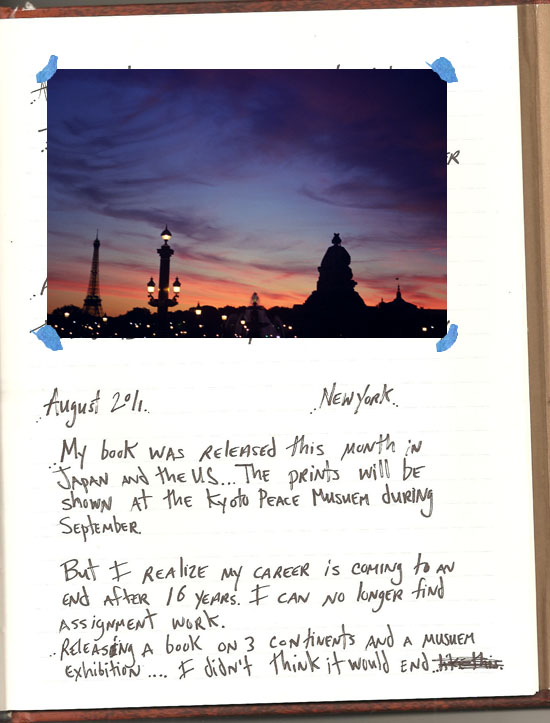 ER
August 2011. New York..
My book was released this month in
Japan and the US... The prints will be
shown at the Kyoto Peace Musuem during
September.
But I realize my career is coming to an
end after 16 years. I can no longer find
assignment work.
..Releasing a book on 3 continents and a musuem
exhibition .... I didn't think it would end like this.